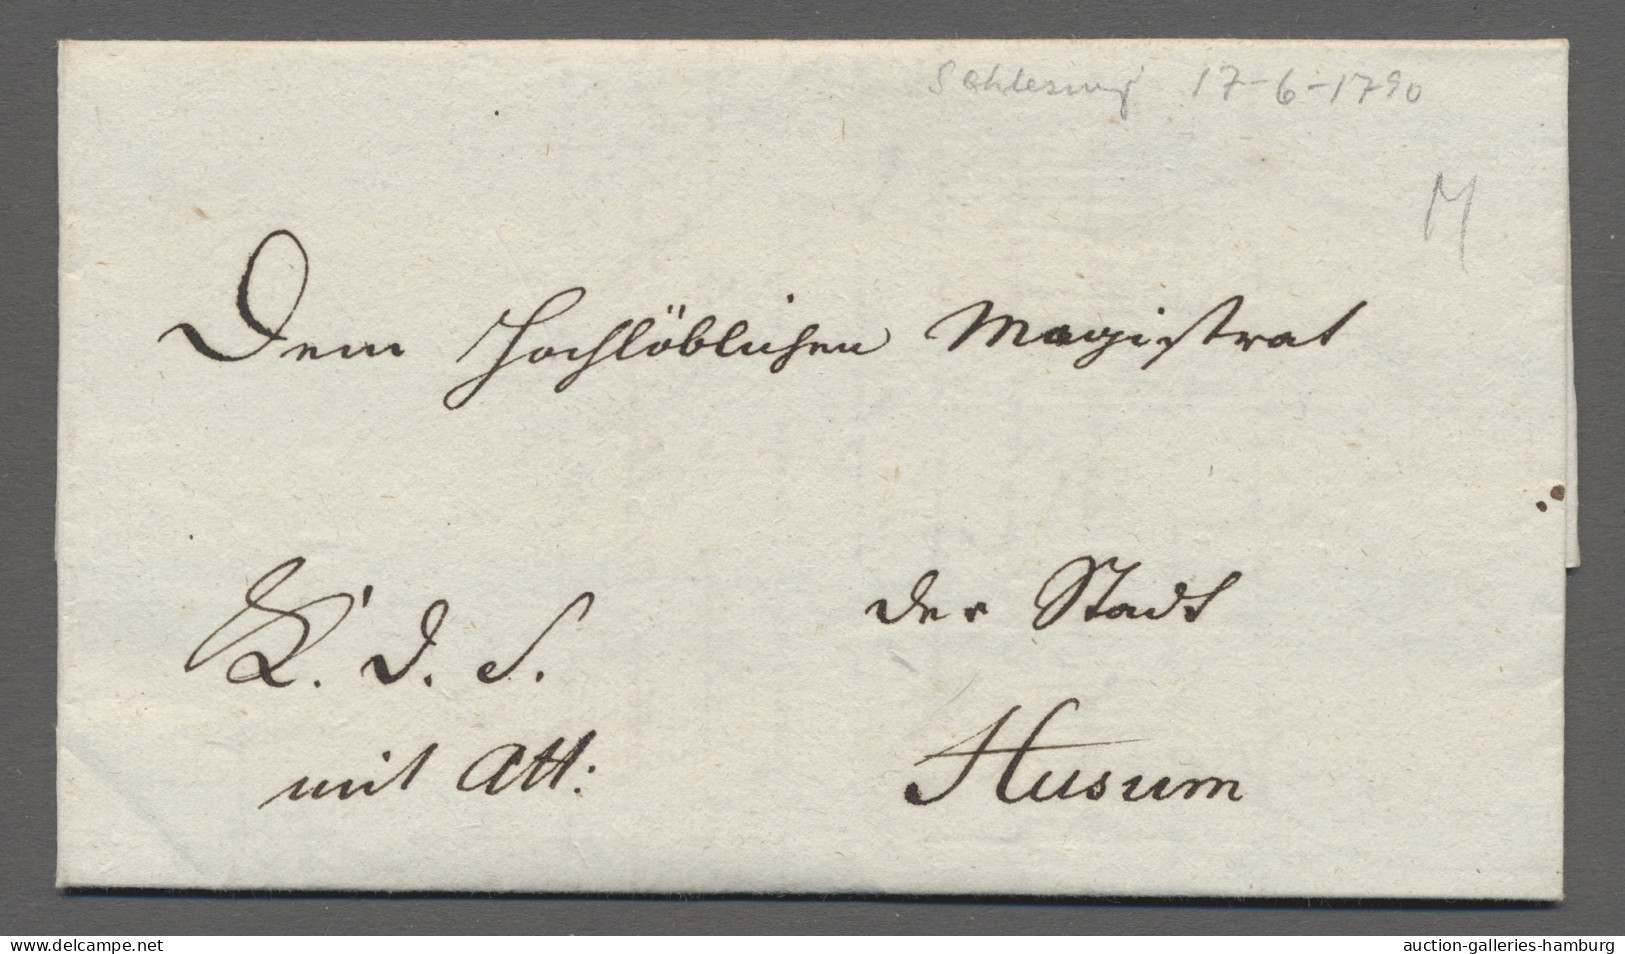 Schleswig 17-6-1790
M
Dem Hochlöblichen Magistrat
der Stadt
K. D. S.
mit Att:
Husum
delcampe.net
auction-galleries-hamburg